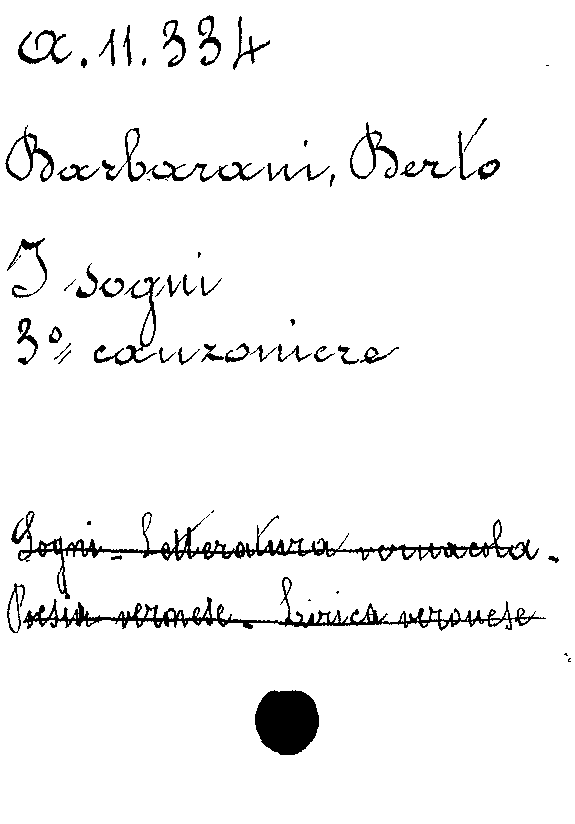 a.11.334
Barbarani, Berto
I sogni
3º canzoniere
Sogni - Letteratura vernacola.
Poesia veronese. Lirica veronese